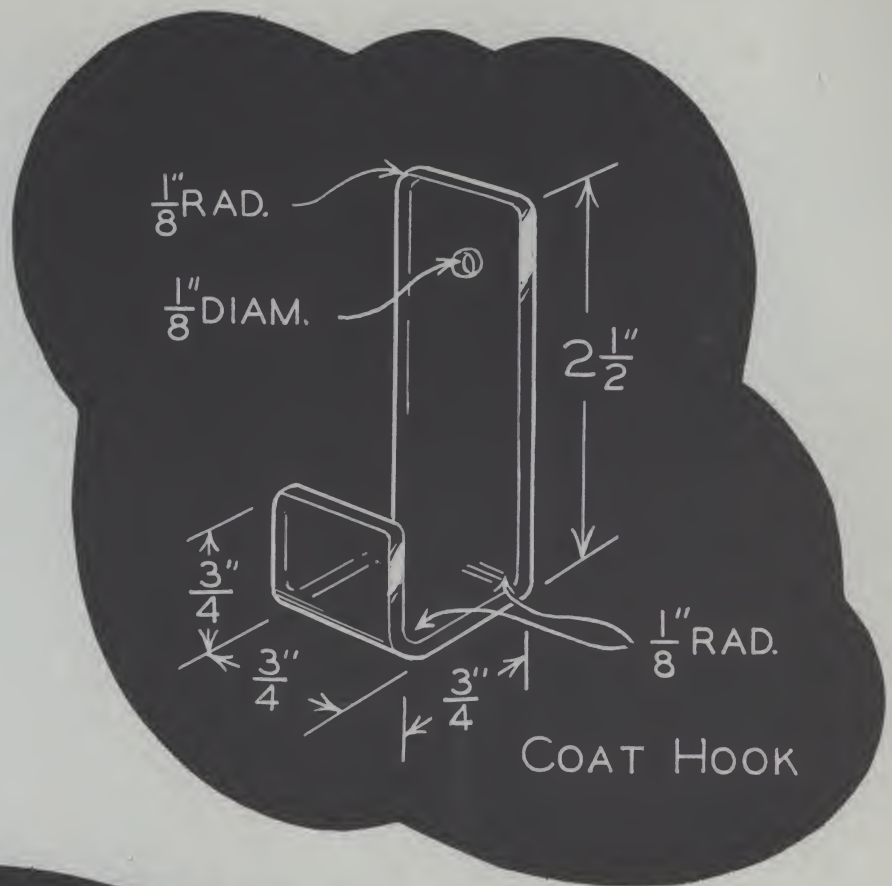 1/8" RAD.
1/8" DIAM.
2 1/2"
3/4"
3/4"
3/4"
1/8" RAD.
COAT HOOK